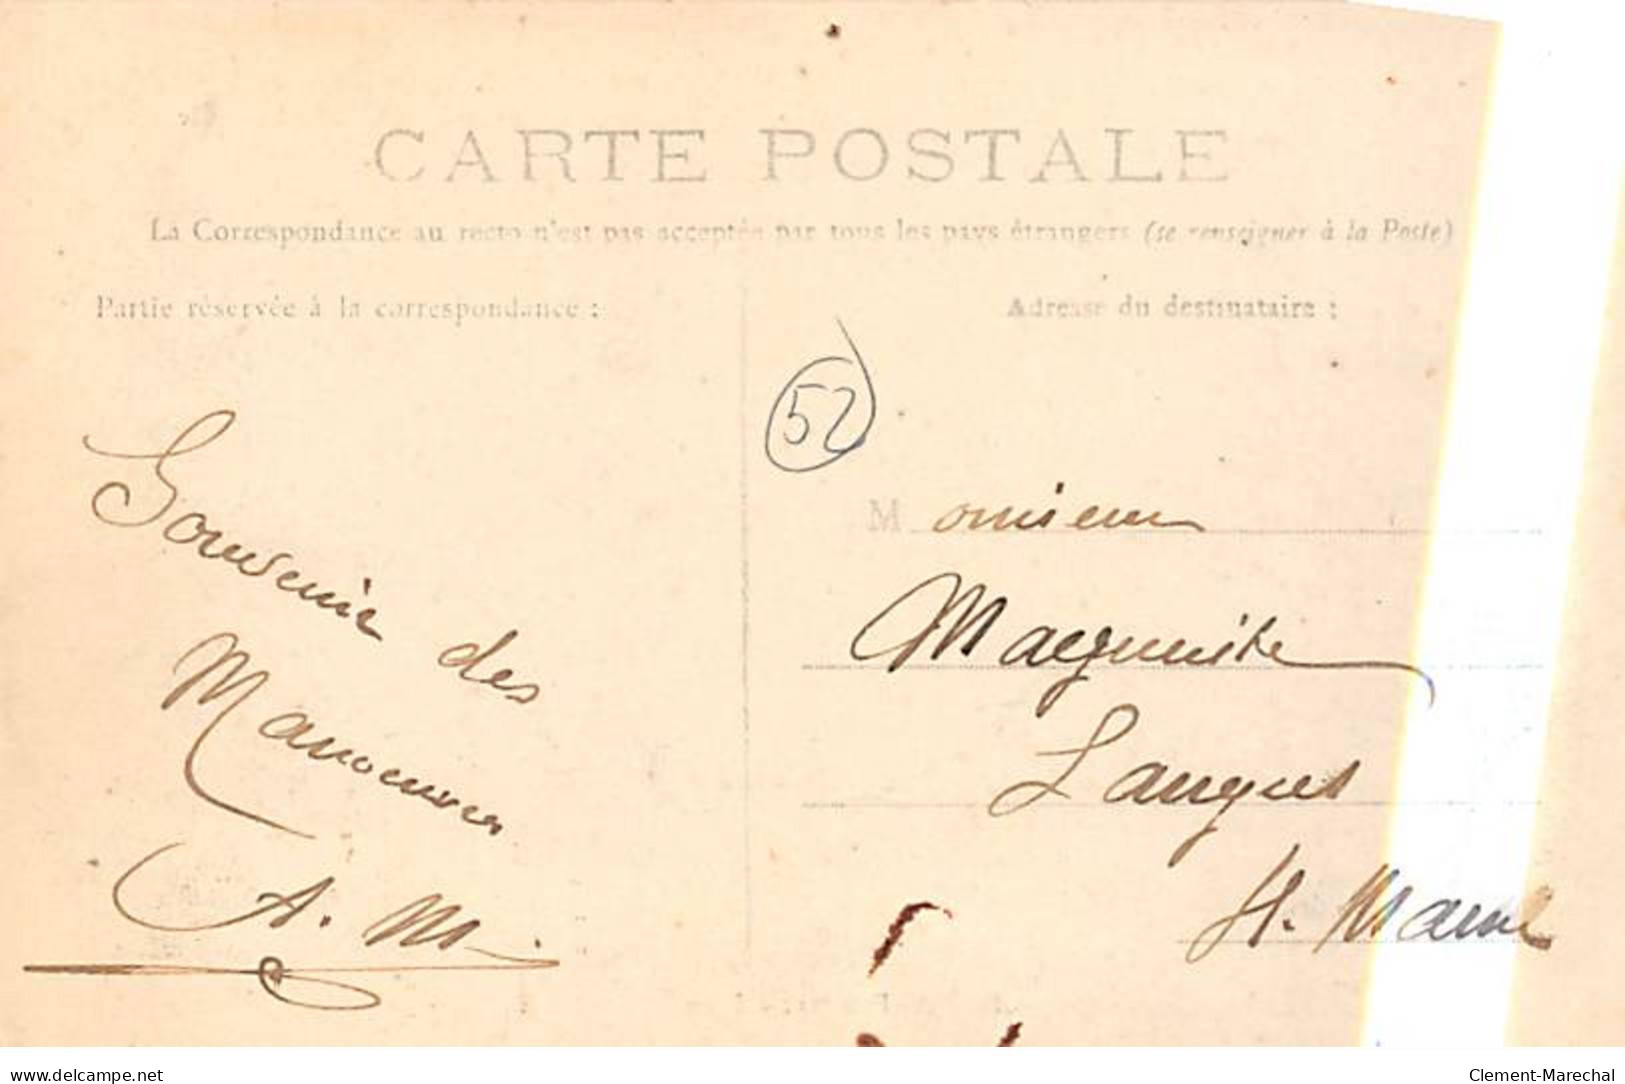 CARTE POSTALE
La Correspondance au recto n'est pas acceptée par tous les pays étrangers (se renseigner à la Poste)
Partie réservée à la correspondance :
Adresse du destinataire :
52
Souvenir des
Manoeuvres
A. M.
Monsieur
Marguerite
Langres
H. Marne
www.delcampe.net
Clement-Marechal